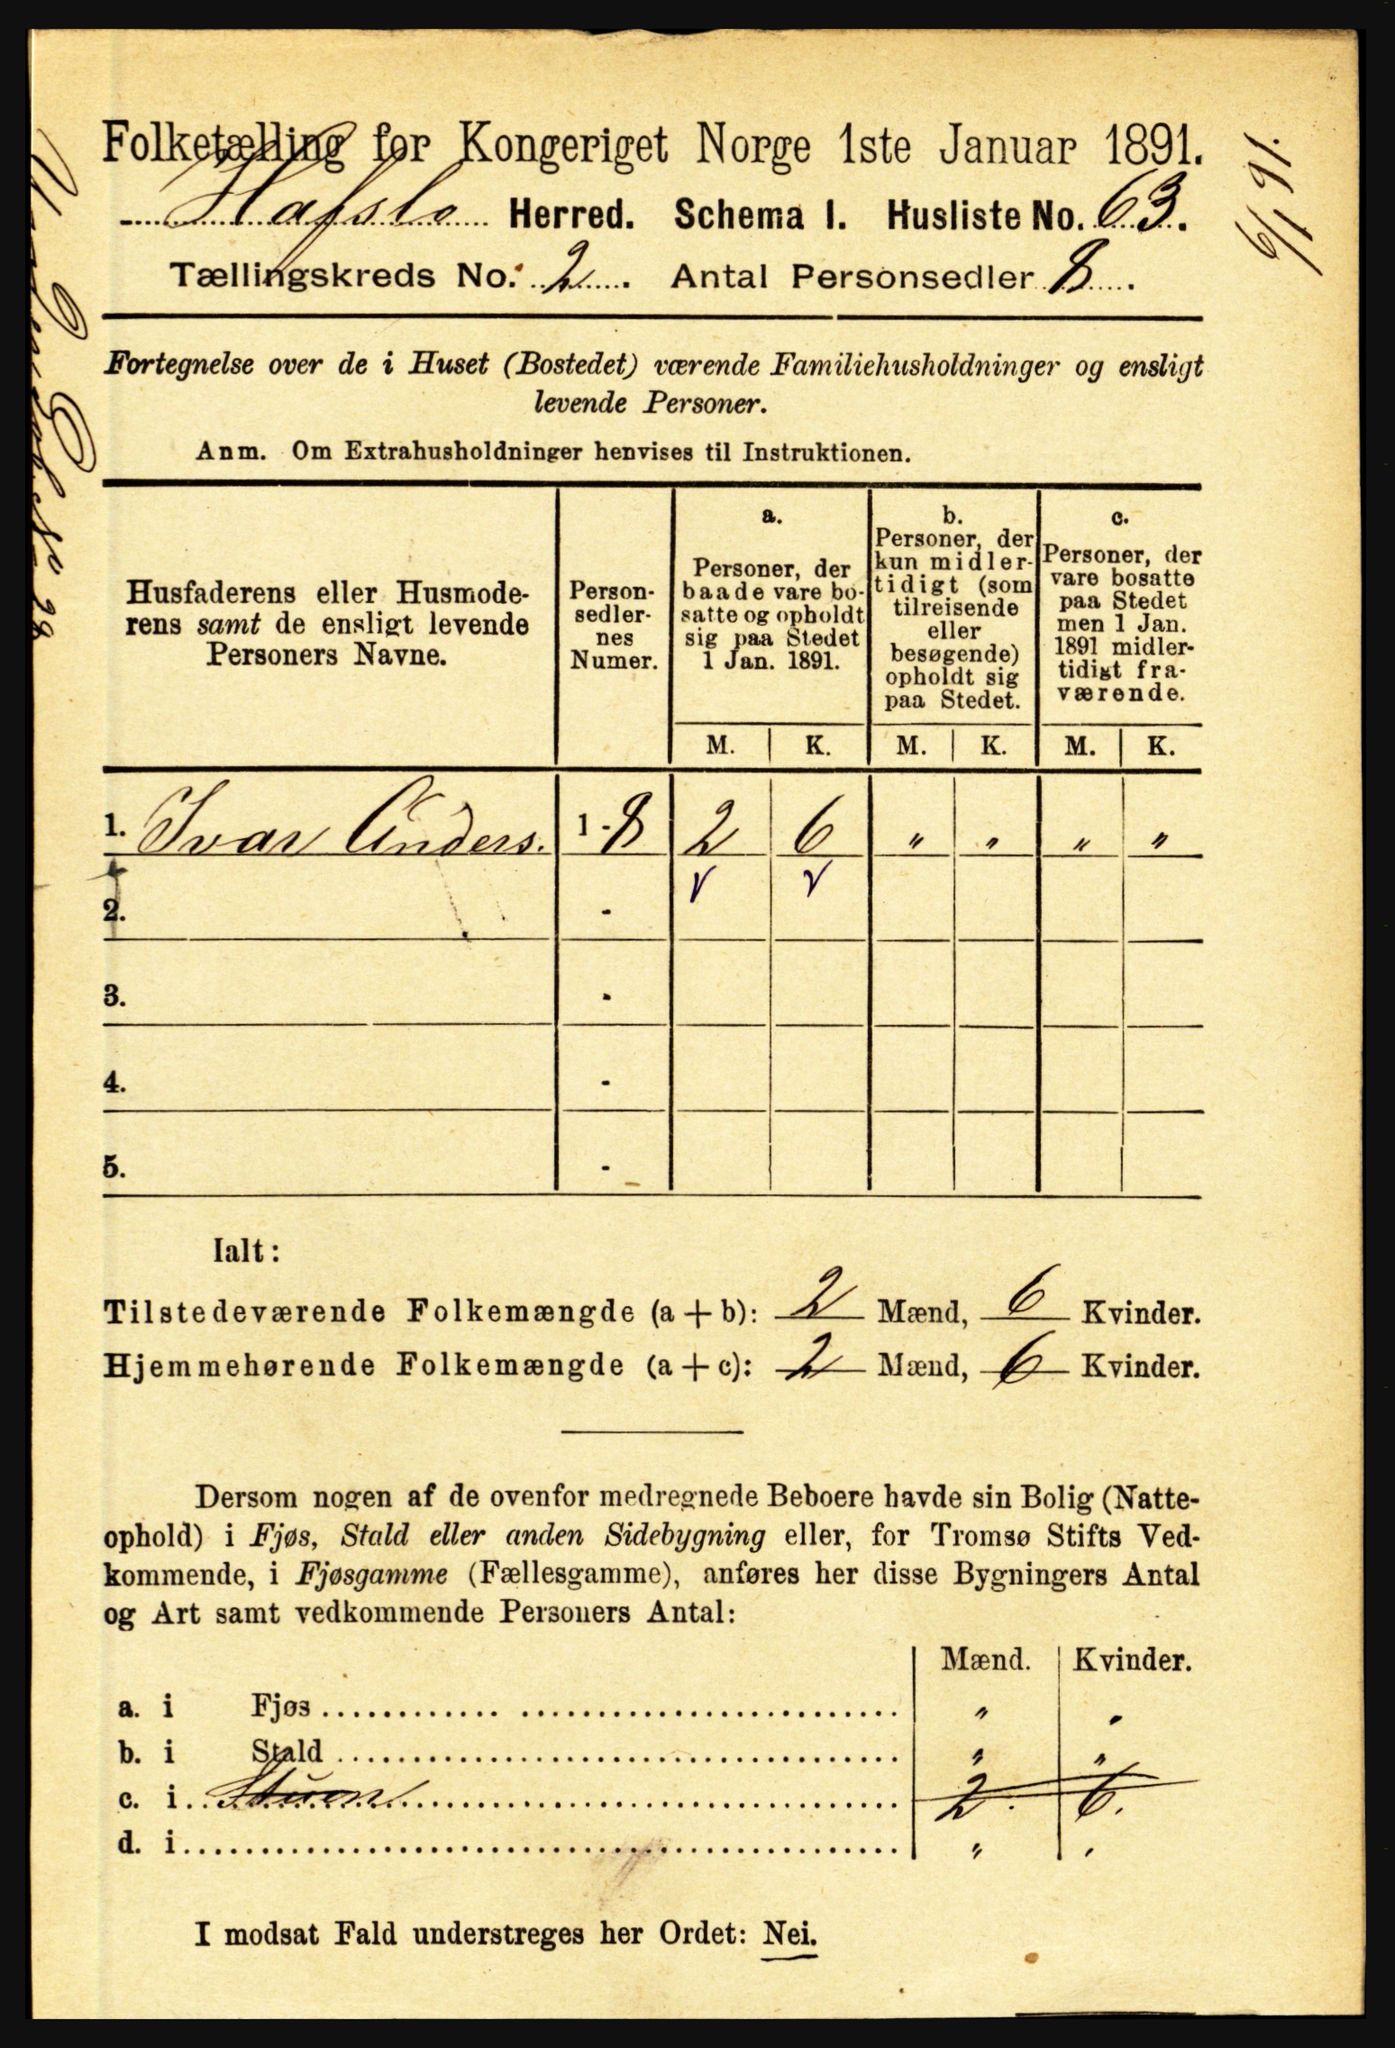 Folketælling for Kongeriget Norge 1ste Januar 1891.
Hafslo Herred. Schema I. Husliste No. 63.
Tællingskreds No. 2. Antal Personsedler 8.
6/1 91.
Fortegnelse over de i Huset (Bostedet) værende Familiehusholdninger og ensligt
levende Personer.
Anm. Om Extrahusholdninger henvises til Instruktionen.
Husfaderens eller Husmode-
rens samt de ensligt levende
Personers Navne.
Person-
sedler-
nes
Numer.
a.
Personer, der
baade vare bo-
satte og opholdt
sig paa Stedet
1 Jan. 1891.
b.
Personer, der
kun midler-
tidigt (som
tilreisende
eller
besøgende)
opholdt sig
paa Stedet.
c.
Personer, der
vare bosatte
paa Stedet
men 1 Jan.
1891 midler-
tidigt fra-
værende.
M. K. M. K. M. K.
1. Ivar Anders. 1 - 8 2 6 " " " "
2. -
3. -
4. -
5. -
Ialt:
Tilstedeværende Folkemængde (a + b): 2 Mænd, 6 Kvinder.
Hjemmehørende Folkemængde (a + c): 2 Mænd, 6 Kvinder.
Dersom nogen af de ovenfor medregnede Beboere havde sin Bolig (Natte-
ophold) i Fjøs, Stald eller anden Sidebygning eller, for Tromsø Stifts Ved-
kommende, i Fjøsgamme (Fællesgamme), anføres her disse Bygningers Antal
og Art samt vedkommende Personers Antal:
Mænd. Kvinder.
a. i Fjøs " "
b. i Stald " "
c. i Stuen 2. 6.
d. i " "
I modsat Fald understreges her Ordet: Nei.